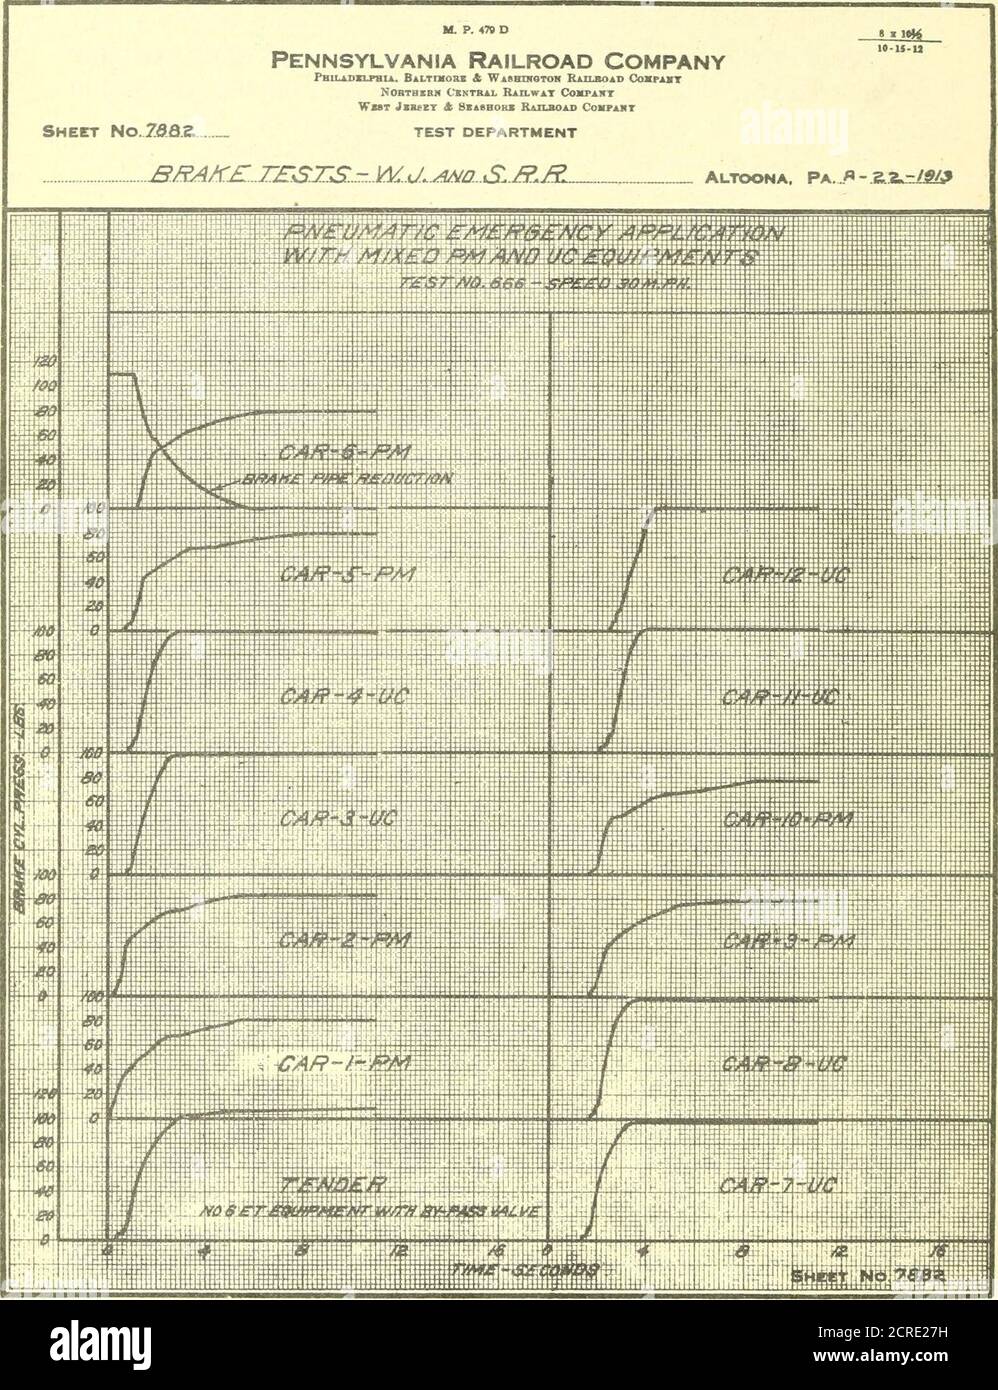 M. P. 479 D
8 x 10½
10-15-12
PENNSYLVANIA RAILROAD COMPANY
PHILADELPHIA, BALTIMORE & WASHINGTON RAILROAD COMPANY
NORTHERN CENTRAL RAILWAY COMPANY
WEST JERSEY & SEASHORE RAILROAD COMPANY
SHEET NO. 7882
TEST DEPARTMENT
BRAKE TESTS - W. J. AND S. R. R.
ALTOONA, PA. 8-22-1913
PNEUMATIC EMERGENCY APPLICATION
WITH MIXED PM AND UC EQUIPMENTS
TEST NO. 666 - SPEED 30 M.P.H.
120
100
80
60
40
20
0
CAR-6-PM
BRAKE PIPE REDUCTION
100
80
60
40
20
0
CAR-5-PM
CAR-12-UC
100
80
60
40
20
0
CAR-4-UC
CAR-11-UC
100
80
60
40
20
0
CAR-3-UC
CAR-10-PM
BRAKE CYL. PRESS.-LBS.
100
80
60
40
20
0
CAR-2-PM
CAR-9-PM
100
80
60
40
20
0
CAR-1-PM
CAR-8-UC
120
100
80
60
40
20
0
TENDER
NO 6 ET EQUIPMENT WITH BY-PASS VALVE
CAR-7-UC
0 4 8 12 16 0 4 8 12 16
TIME-SECONDS
SHEET NO. 7882
alamy
Image ID: 2CRE27H
www.alamy.com